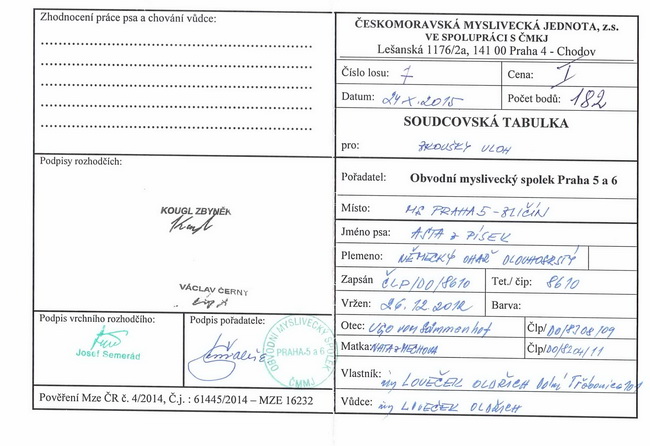 Zhodnocení práce psa a chování vůdce:
Podpisy rozhodčích:
KOUGL ZBYNĚK
VÁCLAV ČERNÝ
Podpis vrchního rozhodčího:
Josef Semerád
Podpis pořadatele:
OBVODNÍ MYSLIVECKÝ SPOLEK
PRAHA-5 a 6
ČMMJ
Pověření Mze ČR č. 4/2014, Č.j. : 61445/2014 – MZE 16232
ČESKOMORAVSKÁ MYSLIVECKÁ JEDNOTA, z.s.
VE SPOLUPRÁCI S ČMKJ
Lešanská 1176/2a, 141 00 Praha 4 - Chodov
Číslo losu: 7 Cena: I
Datum: 24.X.2015 Počet bodů: 182
SOUDCOVSKÁ TABULKA
pro: ZKOUŠKY ULOH
Pořadatel: Obvodní myslivecký spolek Praha 5 a 6
Místo: MS PRAHA 5 - ZLIČÍN
Jméno psa: ASTA z PÍSEK
Plemeno: NĚMECKÝ OHAŘ DLOUHOSRSTÝ
Zapsán ČLP/DO/8610 Tet./ čip: 8610
Vržen: 26.12.2012 Barva:
Otec: Ugo von Sämmenhof Člp/DO/8208/09
Matka: NATA z MECHOVA Člp/DO/8204/11
Vlastník: ing LOVEČEK OLDŘICH Dolní Třebonice
Vůdce: ing LOVEČEK OLDŘICH